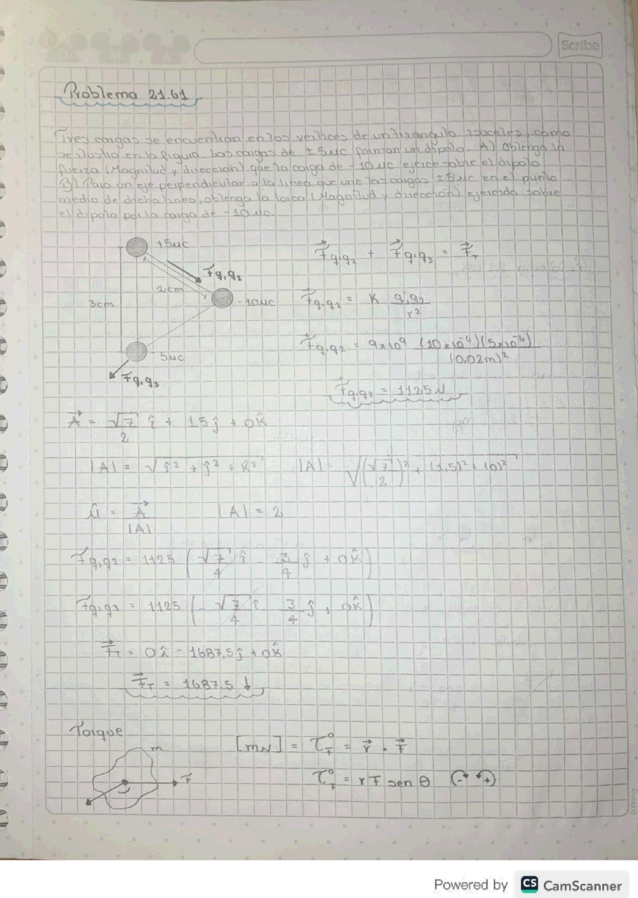 Scribe
Problema 21.61
Tres cargas se encuentran en los vertices de un triangulo isoceles, como
se ilustra en la figura. Las cargas de ±5uc forman un dipolo. A) Obtenga la
fuerza (Magnitud y dirección) que la carga de -10uc ejerce sobre el dipolo
B) Para un eje perpendicular a la linea que une las cargas ±5uc en el punto
medio de dicha linea, obtenga la (Magnitud y dirección) ejercido sobre
el dipolo por la carga de -10uc.
+5uc
F q1q2
2cm
3cm
-10uc
-5uc
F q1q3
F q1q2 + F q1q3 = F T
F q1q2 = K q1q2 / r²
F q1q2 = 9x10⁹ (10x10⁻⁶)(5x10⁻⁶) / (0.02m)²
F q1q2 = 1125N
A = √7/2 î + 1.5ĵ + 0k̂
|A| = √î² + ĵ² + k̂² |A| = √(√7/2)² + (1.5)² + (0)²
û = A/|A| |A| = 2
F q1q2 = 1125 (√7/4 î - 3/4 ĵ + 0k̂)
F q1q3 = 1125 (-√7/4 î 3/4 ĵ + 0k̂)
F T = 0î - 1687.5ĵ + 0k̂
F T = 1687.5 ↓
Torque
m
F
[mN] = τ = r · F
τ = rF sen θ
Powered by CS CamScanner